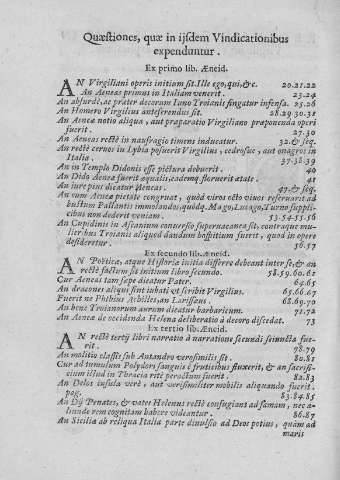 Quæstiones, quæ in ijsdem Vindicationibus
expenduntur.
Ex primo lib. Æneid.
AN Virgiliani operis initium sit. Ille ego, qui, &c. 20.21.22
An Aeneas primus in Italiam venerit. 23.24
An absurdè, ac præter decorum Iuno Troianis fingatur infensa. 25.26
An Homero Virgilius anteferendus sit. 28.29.30.31
An Aeneæ notio aliqua, aut præparatio Virgiliano præponenda operi
fuerit. 27.30
An Aeneas rectè in naufragio timens inducatur. 32.& seq.
An rectè ceruos in Lybia posuerit Virgilius, cedrosue, aut onagros in
Italia. 37.38.39
An in Templo Didonis esse pictura debuerit. 40
An Dido Aeneæ fuerit æqualis, eademq. floruerit ætate. 41
An iure pius dicatur Aeneas. 47.& seq.
An cum Aeneæ pietate congruat, quòd viros octo viuos reseruarit ad
bustum Pallantis immolandos, quodq. Mago, Lucago, Turno supplicibus
cibus non dederit veniam. 53.54.55.56
An Cupidinis in Ascanium conuersio superuacanea sit, contraque mulier
lier.bus Troianis aliquod dandum hospitium fuerit, quod in opere
desideretur. 56.57
Ex secundo lib. Æneid.
AN Poëtica, atque Historiæ initia differre debeant inter se, & an
rectè factum sit initium libro secundo. 58.59.60.61
Cur Aeneas tam sæpe dicatur Pater. 64.65
An dracones aliqui sint iubati vt scribit Virgilius. 65.66.67
Fuerit ne Phthius Achilles, an Larissæus. 68.69.70
An bene Troianorum aurum dicatur barbaricum. 71.72
An Aeneæ de occidenda Helena deliberatio à decoro discedat. 73
Ex tertio lib. Æneid.
AN rectè tertij libri narratio à narratione secundi seiuncta fuerit.
rit. 78.79
An molitio classis sub Antandro verosimilis sit. 80.81
Cur ad tumulum Polydori sanguis è fruticibus fluxerit, & an sacrificium
cium illud in Thracia ritè peractum fuerit. 82.83
An Delos insula verè, aut verisimiliter mobilis aliquando fuerit.
pag. 83.84.85
An Dij Penates, & vates Helenus rectè confugiant ad famam, nec aliunde
liunde rem cognitam habere videantur. 86.87
An Sicilia ab reliqua Italia parte diuulsio ad Deos potius, quàm ad
maris